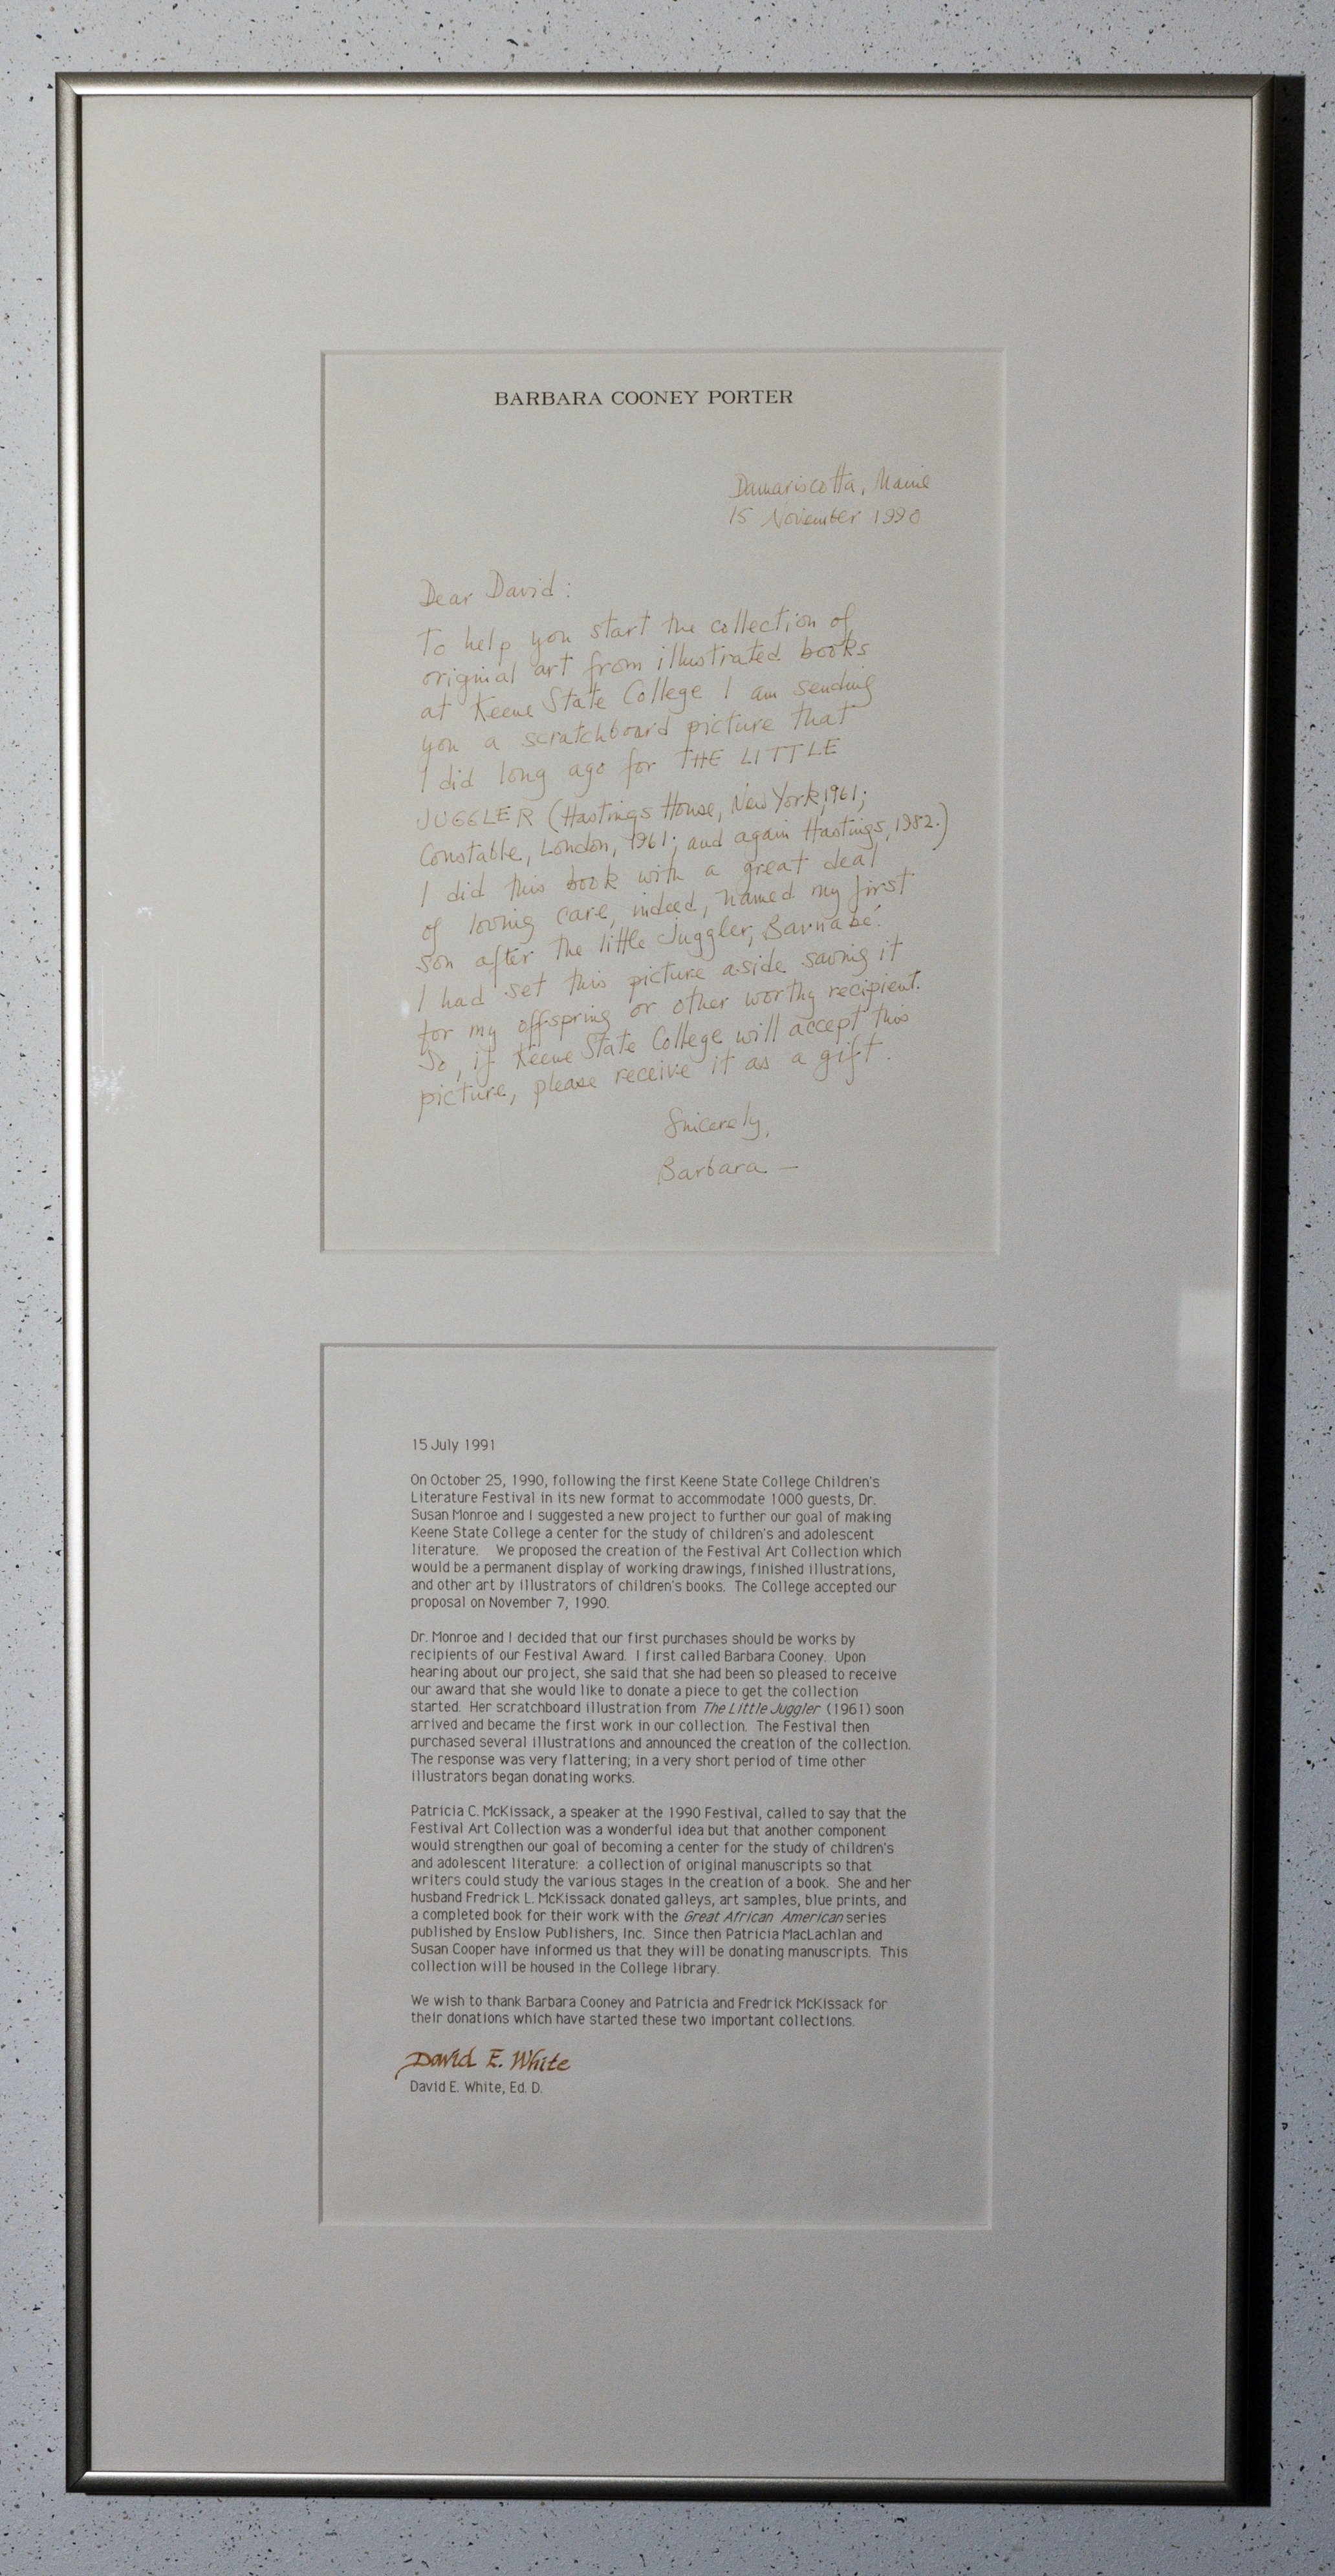 BARBARA COONEY PORTER
Damariscotta, Maine
15 November 1990
Dear David:
To help you start the collection of
original art from illustrated books
at Keene State College I am sending
you a scratchboard picture that
I did long ago for THE LITTLE
JUGGLER (Hastings House, New York, 1961;
Constable, London, 1961; and again Hastings, 1982.)
I did this book with a great deal
of loving care, indeed, named my first
son after the little juggler, Barnabé.
I had set this picture aside saving it
for my offspring or other worthy recipient.
So, if Keene State College will accept this
picture, please receive it as a gift.
Sincerely,
Barbara —
15 July 1991
On October 25, 1990, following the first Keene State College Children's
Literature Festival in its new format to accommodate 1000 guests, Dr.
Susan Monroe and I suggested a new project to further our goal of making
Keene State College a center for the study of children's and adolescent
literature. We proposed the creation of the Festival Art Collection which
would be a permanent display of working drawings, finished illustrations,
and other art by illustrators of children's books. The College accepted our
proposal on November 7, 1990.
Dr. Monroe and I decided that our first purchases should be works by
recipients of our Festival Award. I first called Barbara Cooney. Upon
hearing about our project, she said that she had been so pleased to receive
our award that she would like to donate a piece to get the collection
started. Her scratchboard illustration from The Little Juggler (1961) soon
arrived and became the first work in our collection. The Festival then
purchased several illustrations and announced the creation of the collection.
The response was very flattering; in a very short period of time other
illustrators began donating works.
Patricia C. McKissack, a speaker at the 1990 Festival, called to say that the
Festival Art Collection was a wonderful idea but that another component
would strengthen our goal of becoming a center for the study of children's
and adolescent literature: a collection of original manuscripts so that
writers could study the various stages in the creation of a book. She and her
husband Fredrick L. McKissack donated galleys, art samples, blue prints, and
a completed book for their work with the Great African American series
published by Enslow Publishers, Inc. Since then Patricia MacLachlan and
Susan Cooper have informed us that they will be donating manuscripts. This
collection will be housed in the College library.
We wish to thank Barbara Cooney and Patricia and Fredrick McKissack for
their donations which have started these two important collections.
David E. White
David E. White, Ed. D.